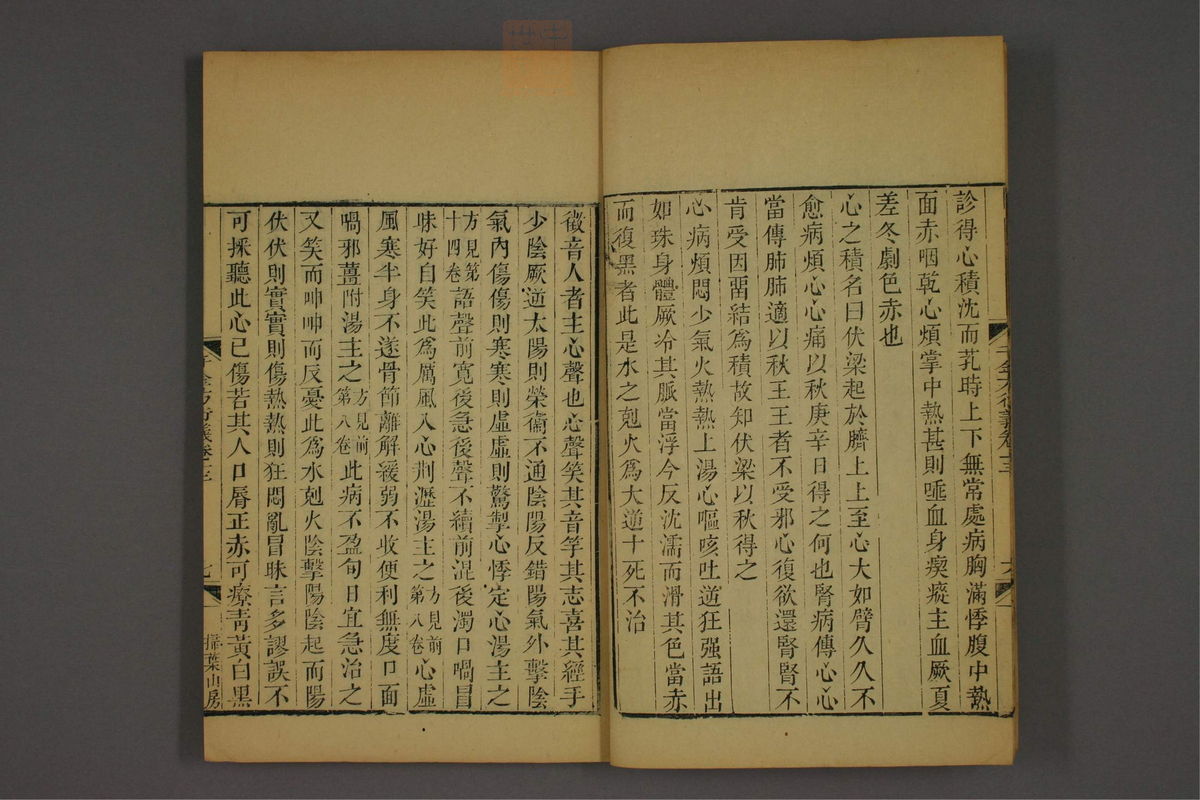 診得心積沈而芤時上下無常處病胸滿悸腹中熱
面赤咽乾心煩掌中熱甚則唾血身瘈瘲主血厥夏
差冬劇色赤也
心之積名曰伏梁起於臍上上至心大如臂久久不
愈病煩心心痛以秋庚辛日得之何也腎病傳心心
當傳肺肺適以秋王王者不受邪心復欲還腎腎不
肯受因畱結爲積故知伏梁以秋得之
心病煩悶少氣火熱熱上湯心嘔咳吐逆狂强語出
如珠身體厥冷其脈當浮今反沈濡而滑其色當赤
而復黑者此是水之剋火爲大逆十死不治
徵音人者主心聲也心聲笑其音竽其志喜其經手
少陰厥逆太陽則榮衞不通陰陽反錯陽氣外擊陰
氣內傷傷則寒寒則虛虛則驚掣心悸定心湯主之
方見第十四卷語聲前寬後急後聲不續前混後濁口喎冒
昧好自笑此爲厲風入心荆瀝湯主之方見前第八卷心虛
風寒半身不遂骨節離解緩弱不收便利無度口面
喎邪薑附湯主之方見前第八卷此病不盈旬日宜急治之
又笑而呻呻而反憂此爲水剋火陰擊陽陰起而陽
伏伏則實實則傷熱熱則狂悶亂冒昧言多謬誤不
可採聽此心已傷若其人口脣正赤可療靑黃白黑
千金方衍義卷十三
七
掃葉山房